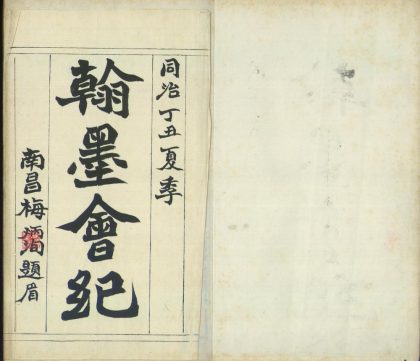 同治丁丑夏季
翰墨會紀
南昌梅炳題眉